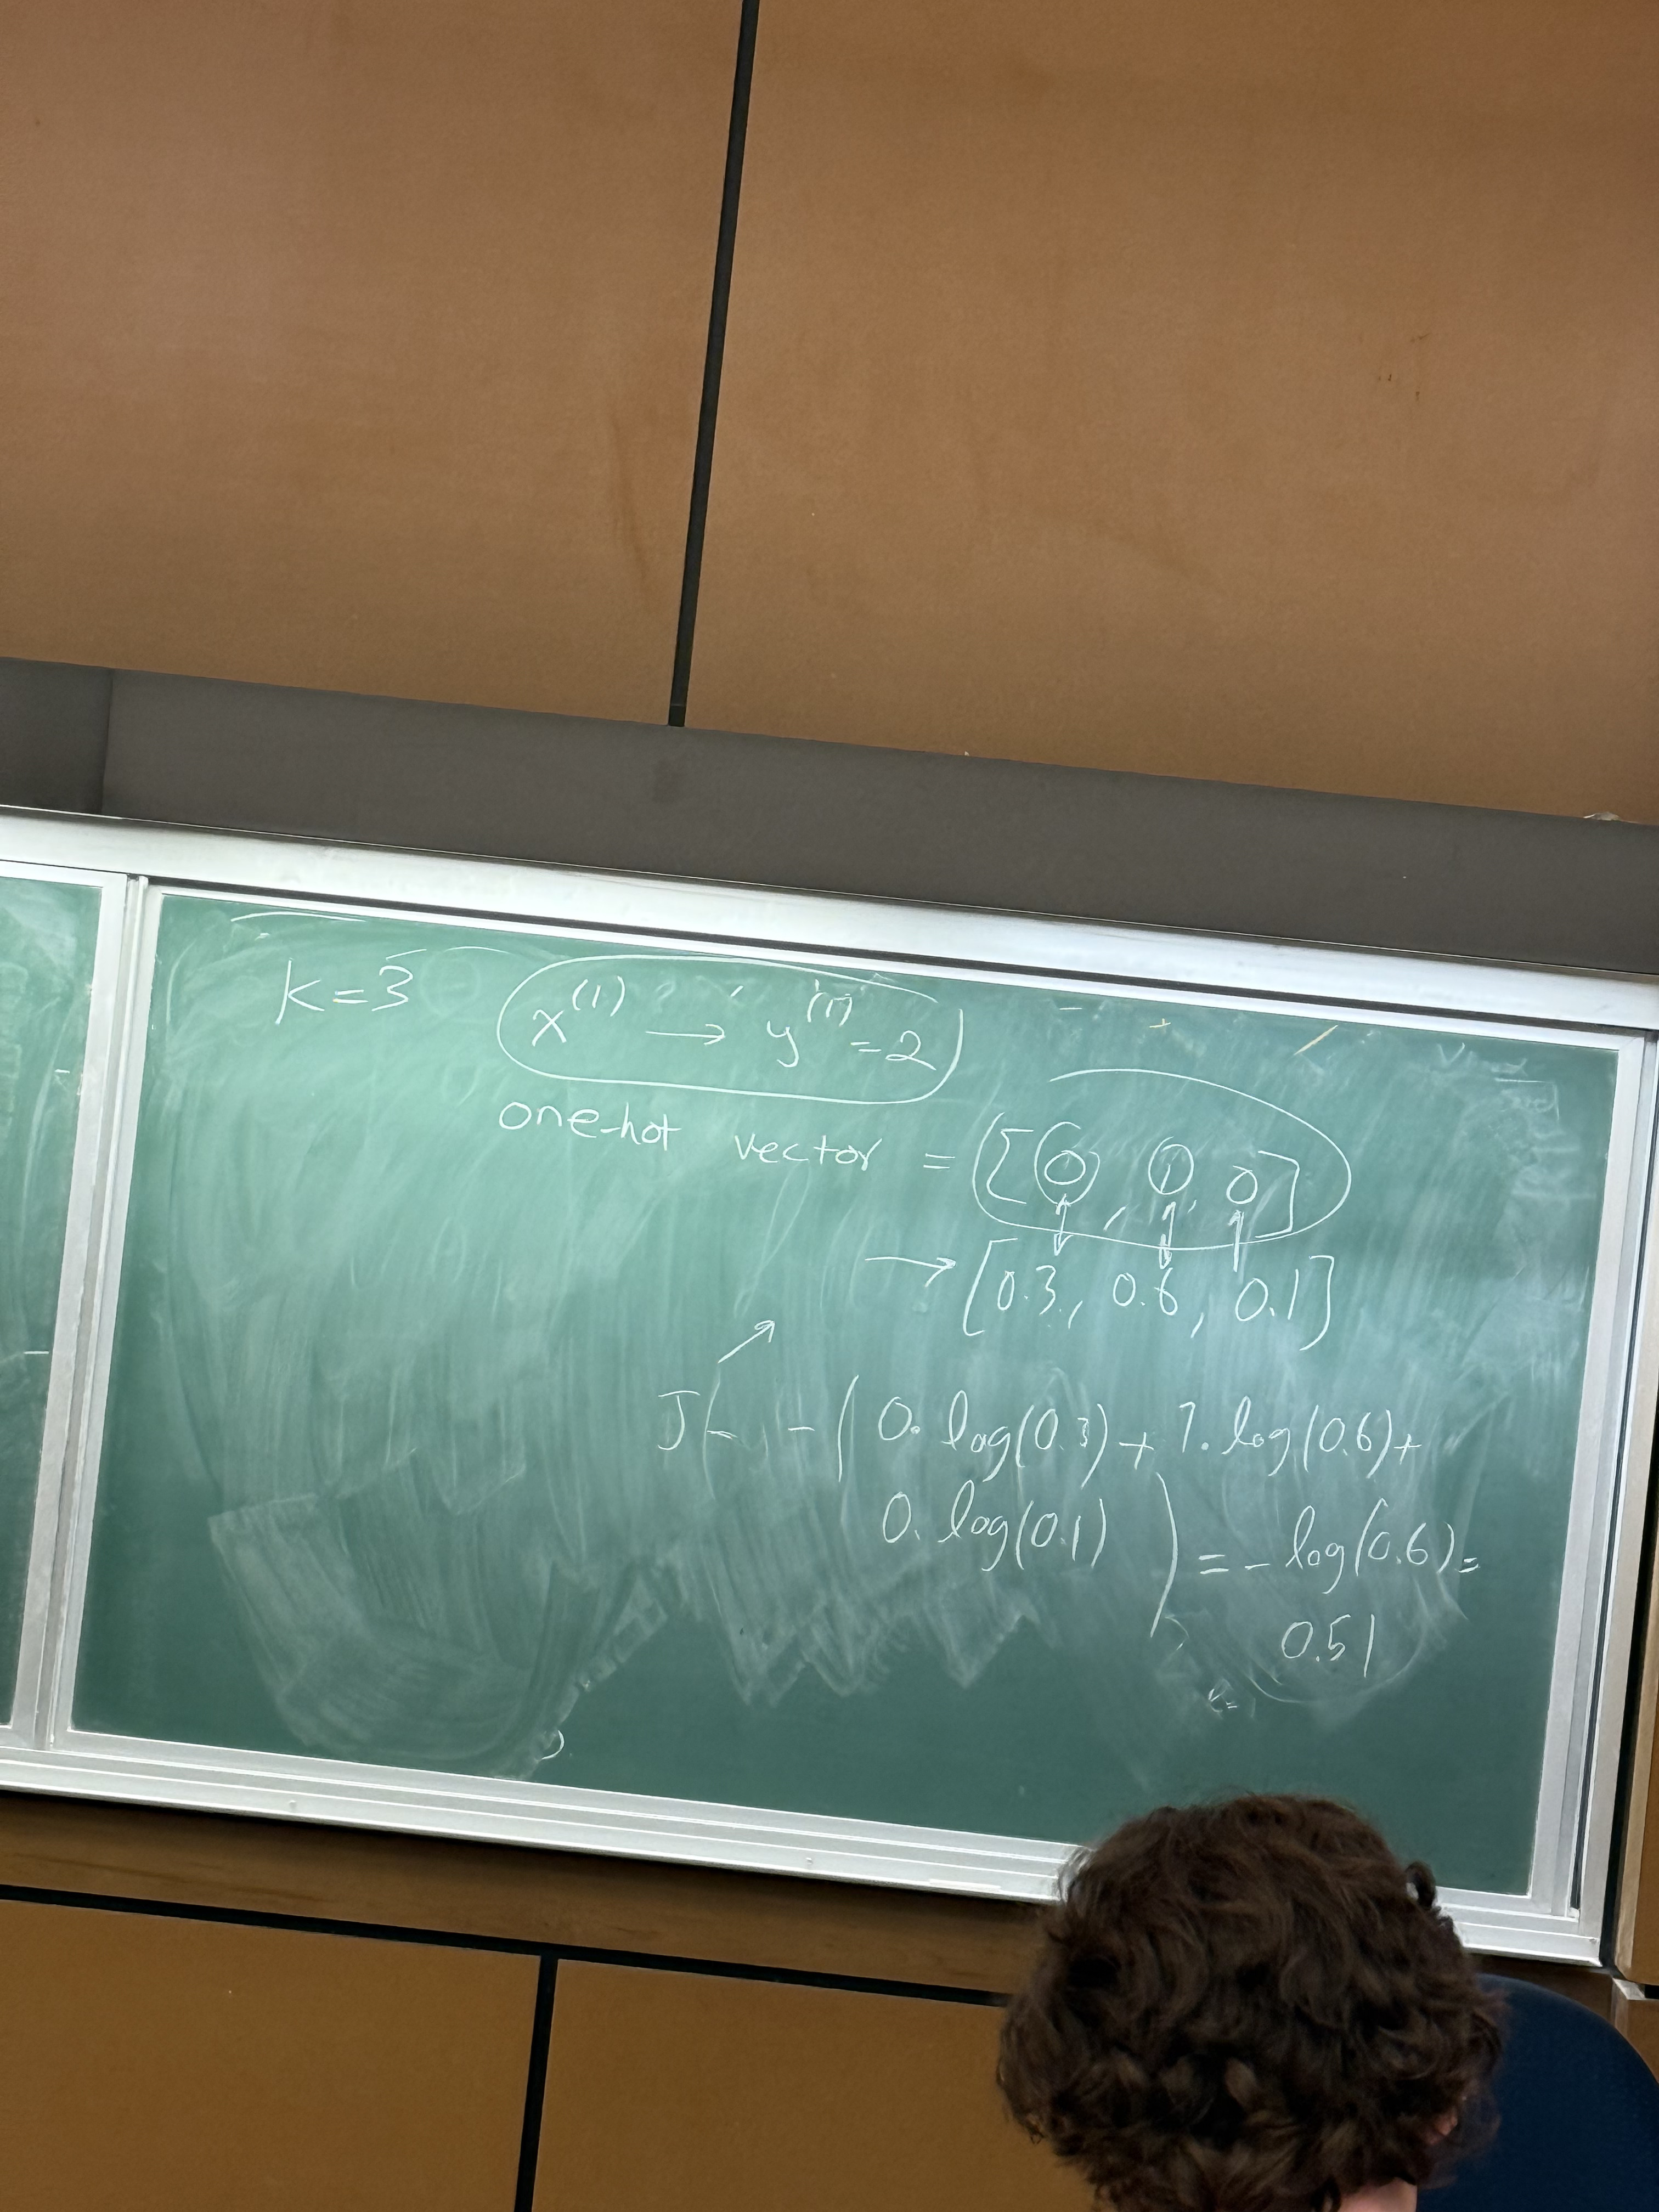 K=3
x⁽¹⁾ → y⁽¹⁾ = 2
one-hot vector = [0, 1, 0]
→ [0.3, 0.6, 0.1]
J - ( 0. log(0.3) + 1. log(0.6) +
0. log(0.1) ) = - log(0.6) =
0.51